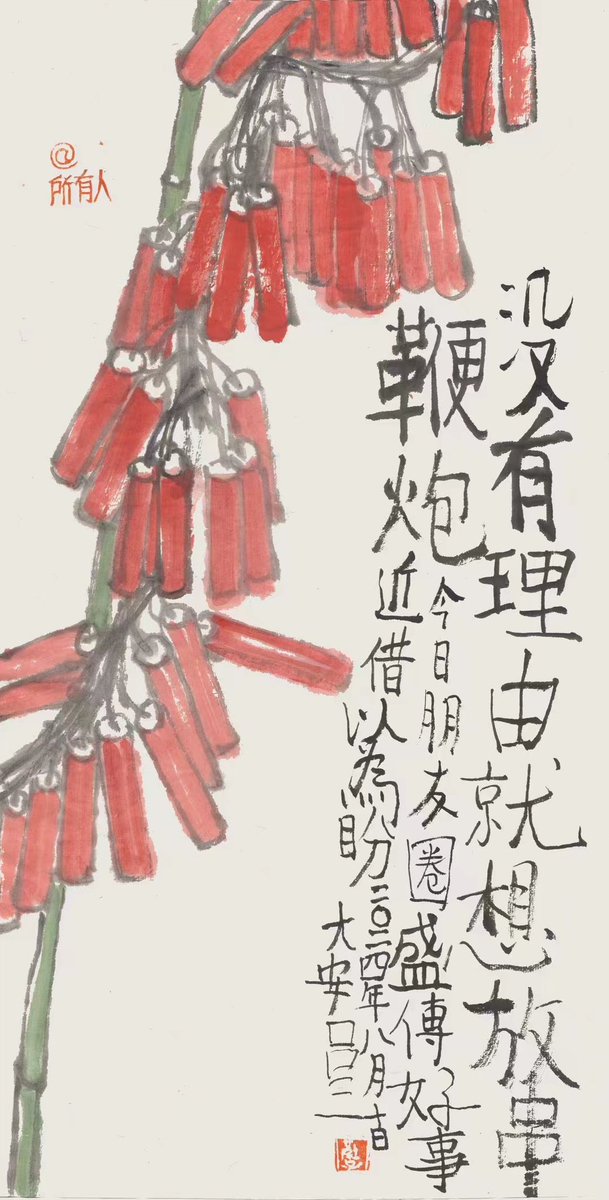 @
所有人
没有理由就想放串
鞭炮
今日朋友圈盛傳好事
近借以為盼
二〇二四年八月
大安吕三